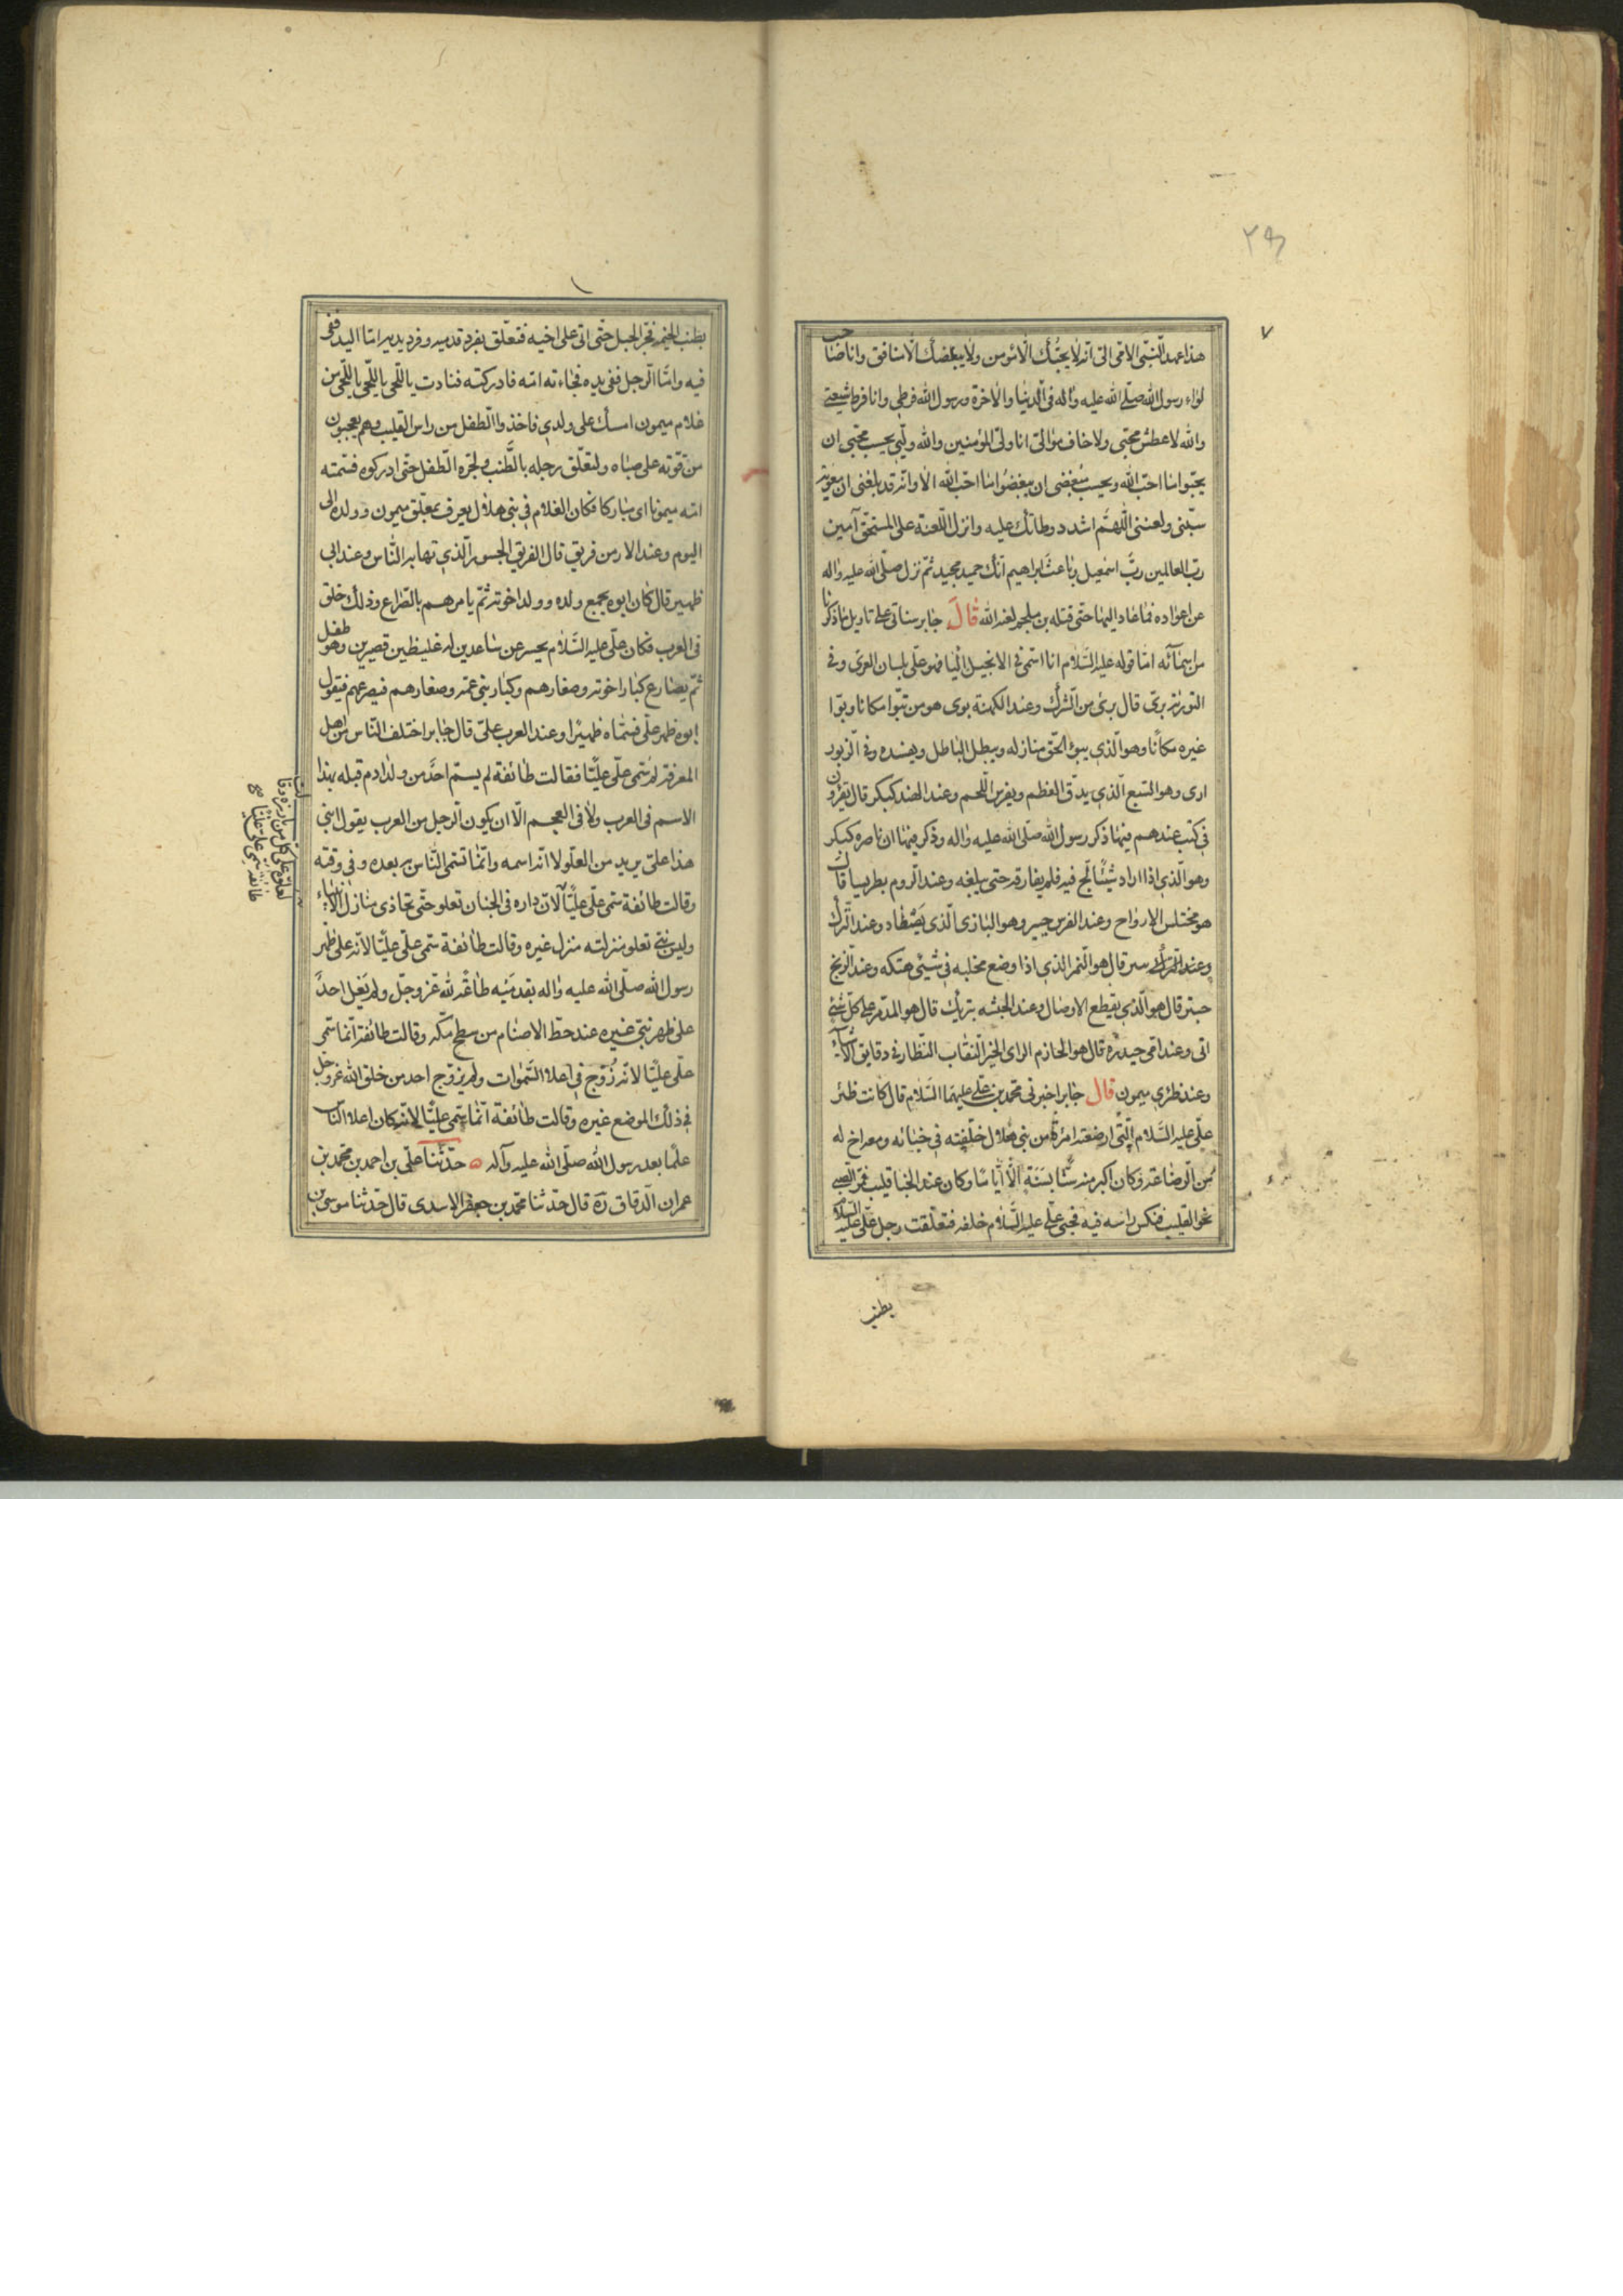 ٧
هذا عهد النّبىّ الامّى الىّ انّه لا يحبّك الّا مؤمن ولا يبغضك الّا منافق وانا صاحب
لواء رسول الله صلّى الله عليه واله فى الدنيا والاخرة ورسول الله فرطى وانا فرط شيعتى
والله لا عطش محبّى ولا خاف موالىّ انا ولىّ المؤمنين والله وليّى يحسب محبّى ان
يحبّوا ما احبّ الله ويحسب مبغضى ان يبغضوا ما احبّ الله الا وانّه قد بلغنى ان معوية
سبّنى ولعننى اللّهمّ اشدد وطاتك عليه وانزل اللّعنة على المستحقّ آمين
ربّ العالمين ربّ اسمعيل وباعث ابراهيم انّك حميد مجيد ثمّ نزل صلّى الله عليه واله
عن اعواده فما عاد اليها حتّى قتله بن ملجم لعنه الله قال جابر سناتى على تاويل ما ذكرنا
من اسمائه امّا قوله عليه السّلام انا اسمى فى الانجيل اليا فهو علّى بلسان العرب وفى
التورية برىّ قال برئ من الشّرك وعند الكهنة بوى هو من تبوّا مكانا وبوّا
غيره مكانًا وهو الّذى يبوئ الحّق منازله ويبطل الباطل ويفسده وفى الزبور
ارى وهو السّبع الّذى يدقّ العظم ويفرس اللّحم وعند الهند كبكر قال يقرؤن
فى كتب عندهم فيها ذكر رسول الله صلّى الله عليه واله وذكر فيها ان ناصره كبكر
وهو الّذى اذا اراد شيئًا لجّ فيه فلم يفارقه حتى يبلغه وعند الروم بطريسا قال
هو مختلس الارواح وعند الفرس حبير وهو البازى الّذى يصطاد وعند الترك
وعند الترك سر قال هو النّمر الذى اذا وضع مخلبه فى شيئ هتكه وعند الزّنج
حبتر قال هو الّذى يقطع الاوصال وعند الحبشه بتريك قال هو المدمّر على كلّ شئ
اتى وعند امّى حيدرة قال هو الحازم الراى الخير النقاب النّظار فى دقايق الاشياء
وعند ظئرى ميمون قال جابر اخبرنى محمّد بن علّى عليهما السّلام قال كانت ظئر
علّى عليه السّلام الّتى ارضعته امرأة من بنى هلال خلّفته فى خبائه ومعه اخ له
من الرضاعة وكان اكبر منه سنّا بسنة الّا ايّامًا وكان عند الخبا قليب فمرّ الصبى
نحو القليب فنكس راسه فيه فحبى علّى عليه السّلام خلفه فتعلّقت رجل علّى عليه السّلام
بطنب
بطنب الخيمة فجر الحبل حتّى اتى على اخيه فتعلّق بفرد قدميه وفرد يديه امّا اليد ففى
فيه وامّا الرجل ففى يده فجاءته امّه فادركته فنادت ياللّحى ياللّحى ياللّحى من
غلام ميمون امسك على ولدى فاخذوا الطفل من راس القليب وهم يعجبون
من قوّته على صباه ولتعلّق رجله بالطّنب ولجرّه الطّفل حتى ادركوه فسمّته
امّه ميمونا اى مباركا فكان الغلام فى بنى هلال يعرف بمعلّق ميمون وولده الى
اليوم وعند الارمن فريق قال الفريق الجسور الّذى تهابه النّاس وعند ابى
ظهير قال كان ابوه يجمع ولده وولد اخوته ثمّ يامرهم بالصّراع وذلك خلق
فى العرب فكان علّى عليه السّلام يحسر عن ساعدين له غليظين قصيرين وهو طفل
ثمّ يصارع كبار اخوته وصغارهم وكبار بنى عمّه وصغارهم فيصرعهم فيقول
ابوه ظهر علّى فسمّاه ظهيرًا وعند العرب علىّ قال جابر اختلف النّاس من اهل
المعرفة لم سمّى علّى عليًّا فقالت طائفة لم يسمّ احدٌ من ولد ادم قبله بهذا
الاسم فى العرب ولا فى العجم الّا ان يكون الرجل من العرب يقول ابنى
هذا علىّ يريد من العلوّ لا انّه اسمه وانّما تسمّى النّاس به بعده وفى وقته
وقالت طائفة سمّى علّى عليًّا لانّ داره فى الجنان تعلو حتّى تحاذى منازل الانبياء
وليس نبىّ تعلو منزلته منزل غيره وقالت طائفة سمّى علّى عليًّا لانّه على ظهر
رسول الله صلّى الله عليه واله بقدميه طاعة لله عزّ وجلّ ولم يعل احدٌ
على ظهر نبىّ غيره عند حطّ الاصنام من سطح مكّة وقالت طائفة انّما سمّى
علّى عليًّا لانّه زُوّج فى اعلا السّموات ولم يزوّج احد من خلق الله عزّ وجلّ
فى ذلك الموضع غيره وقالت طائفة انّما سمّى عليًّا لانّه كان اعلا النّاس
علمًا بعد رسول الله صلّى الله عليه وآله حدّثنا علّى بن احمد بن محمّد بن
عمران الدّقاق ره قال حدّثنا محمّد بن جعفر الاسدى قال حدّثنا موسى بن
لعلوّه على كلّ من بارزه وقالت
طائفة سمى على عليًّا صح